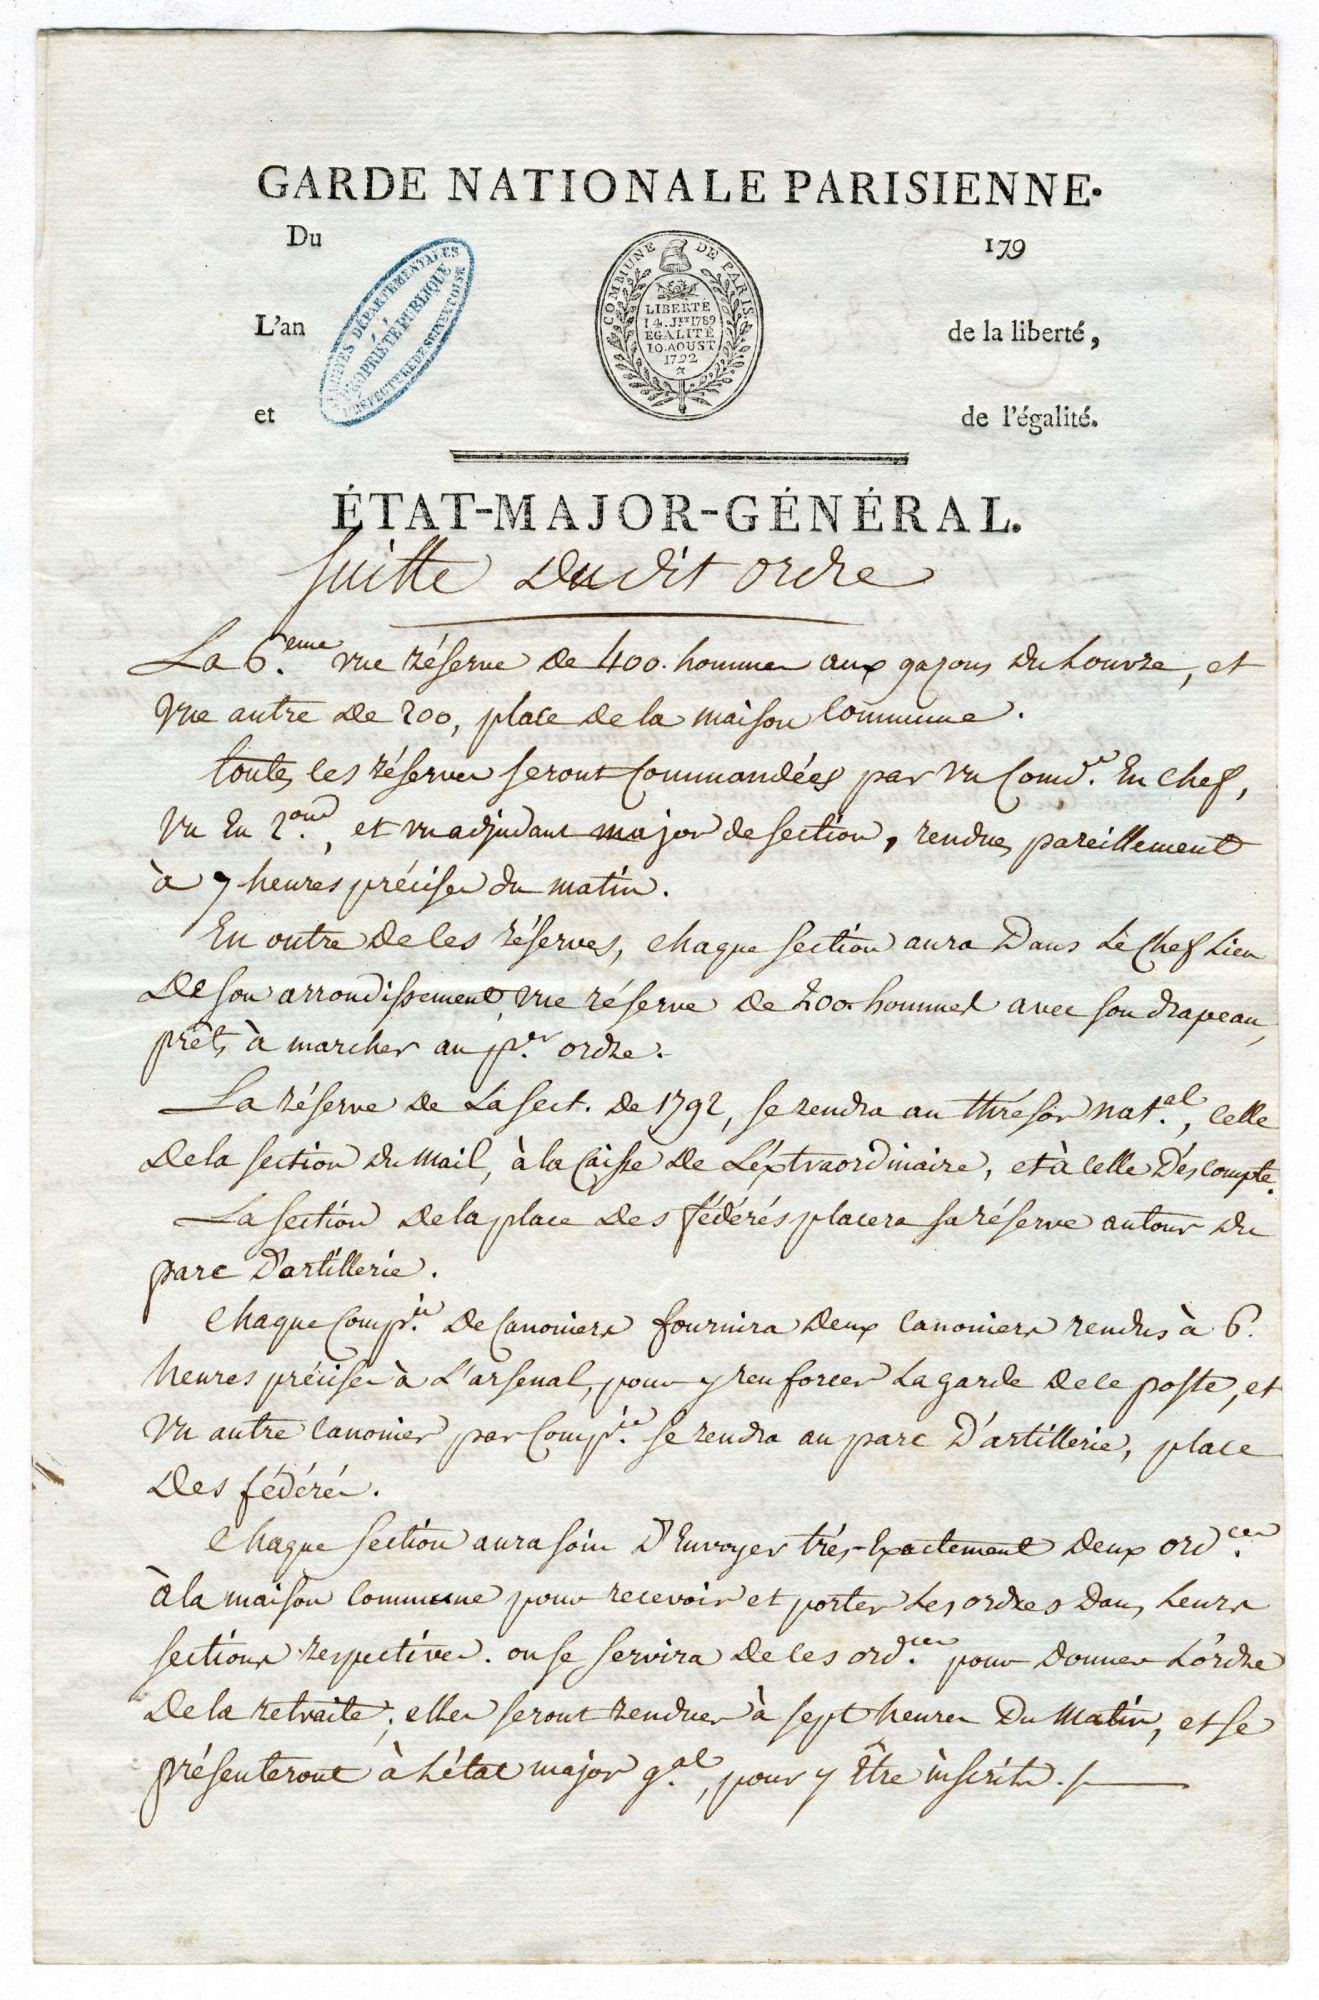 GARDE NATIONALE PARISIENNE.
Du 179
L'an de la liberté,
et de l'égalité.
COMMUNE DE PARIS.
LIBERTE
14 JET 1789
EGALITÉ
10 AOUST
1792
ARCHIVES DÉPARTEMENTALES
PROPRIÉTÉ PUBLIQUE
PRÉFECTURE DE SEINE ET OISE
ÉTAT-MAJOR-GÉNÉRAL.
Suitte Dudit ordre
La 6.eme vne réserve de 400. hommes aux gazons du Louvre, et
Vne autre de 200, place de la maison Commune.
toutes les réserves seront Commandées par vn Comd.t En chef,
vn En 2.ond, et vn adjudant major de section, rendus pareillement
à 7 heures précises du matin.
En outre de ces réserves, chaque section aura Dans Le Chef Lieu
De son arrondissement, vne réserve de 200. hommes avec son drapeau,
prêts à marcher au p.er ordre.
La réserve de La sect. de 1792, se rendra au thrésor nat.al, celle
De la section du Mail, à la Caisse de L'éxtraordinaire, et à celle D'éscompte.
La section de la place des fédérés placera sa réserve autour du
parc D'artillerie.
Chaque Comp.ie De Canoniers fournira deux canoniers rendus à 6.
heures précises à L'arsenal, pour y renforcer La garde de ce poste, et
vn autre canonier par Comp.ie se rendra au parc D'artillerie, place
Des fédérés.
Chaque section aura soin D'Envoyer très-Exactement deux ord.ces
à la maison commune pour recevoir et porter Les ordres Dans Leurs
sections respectives. on se servira de ces ord.ces pour donner L'ordre
De la retraite, elles seront rendues à sept heures Du Matin, et se
présenteront à L'état major g.al, pour y Être inscrites./.